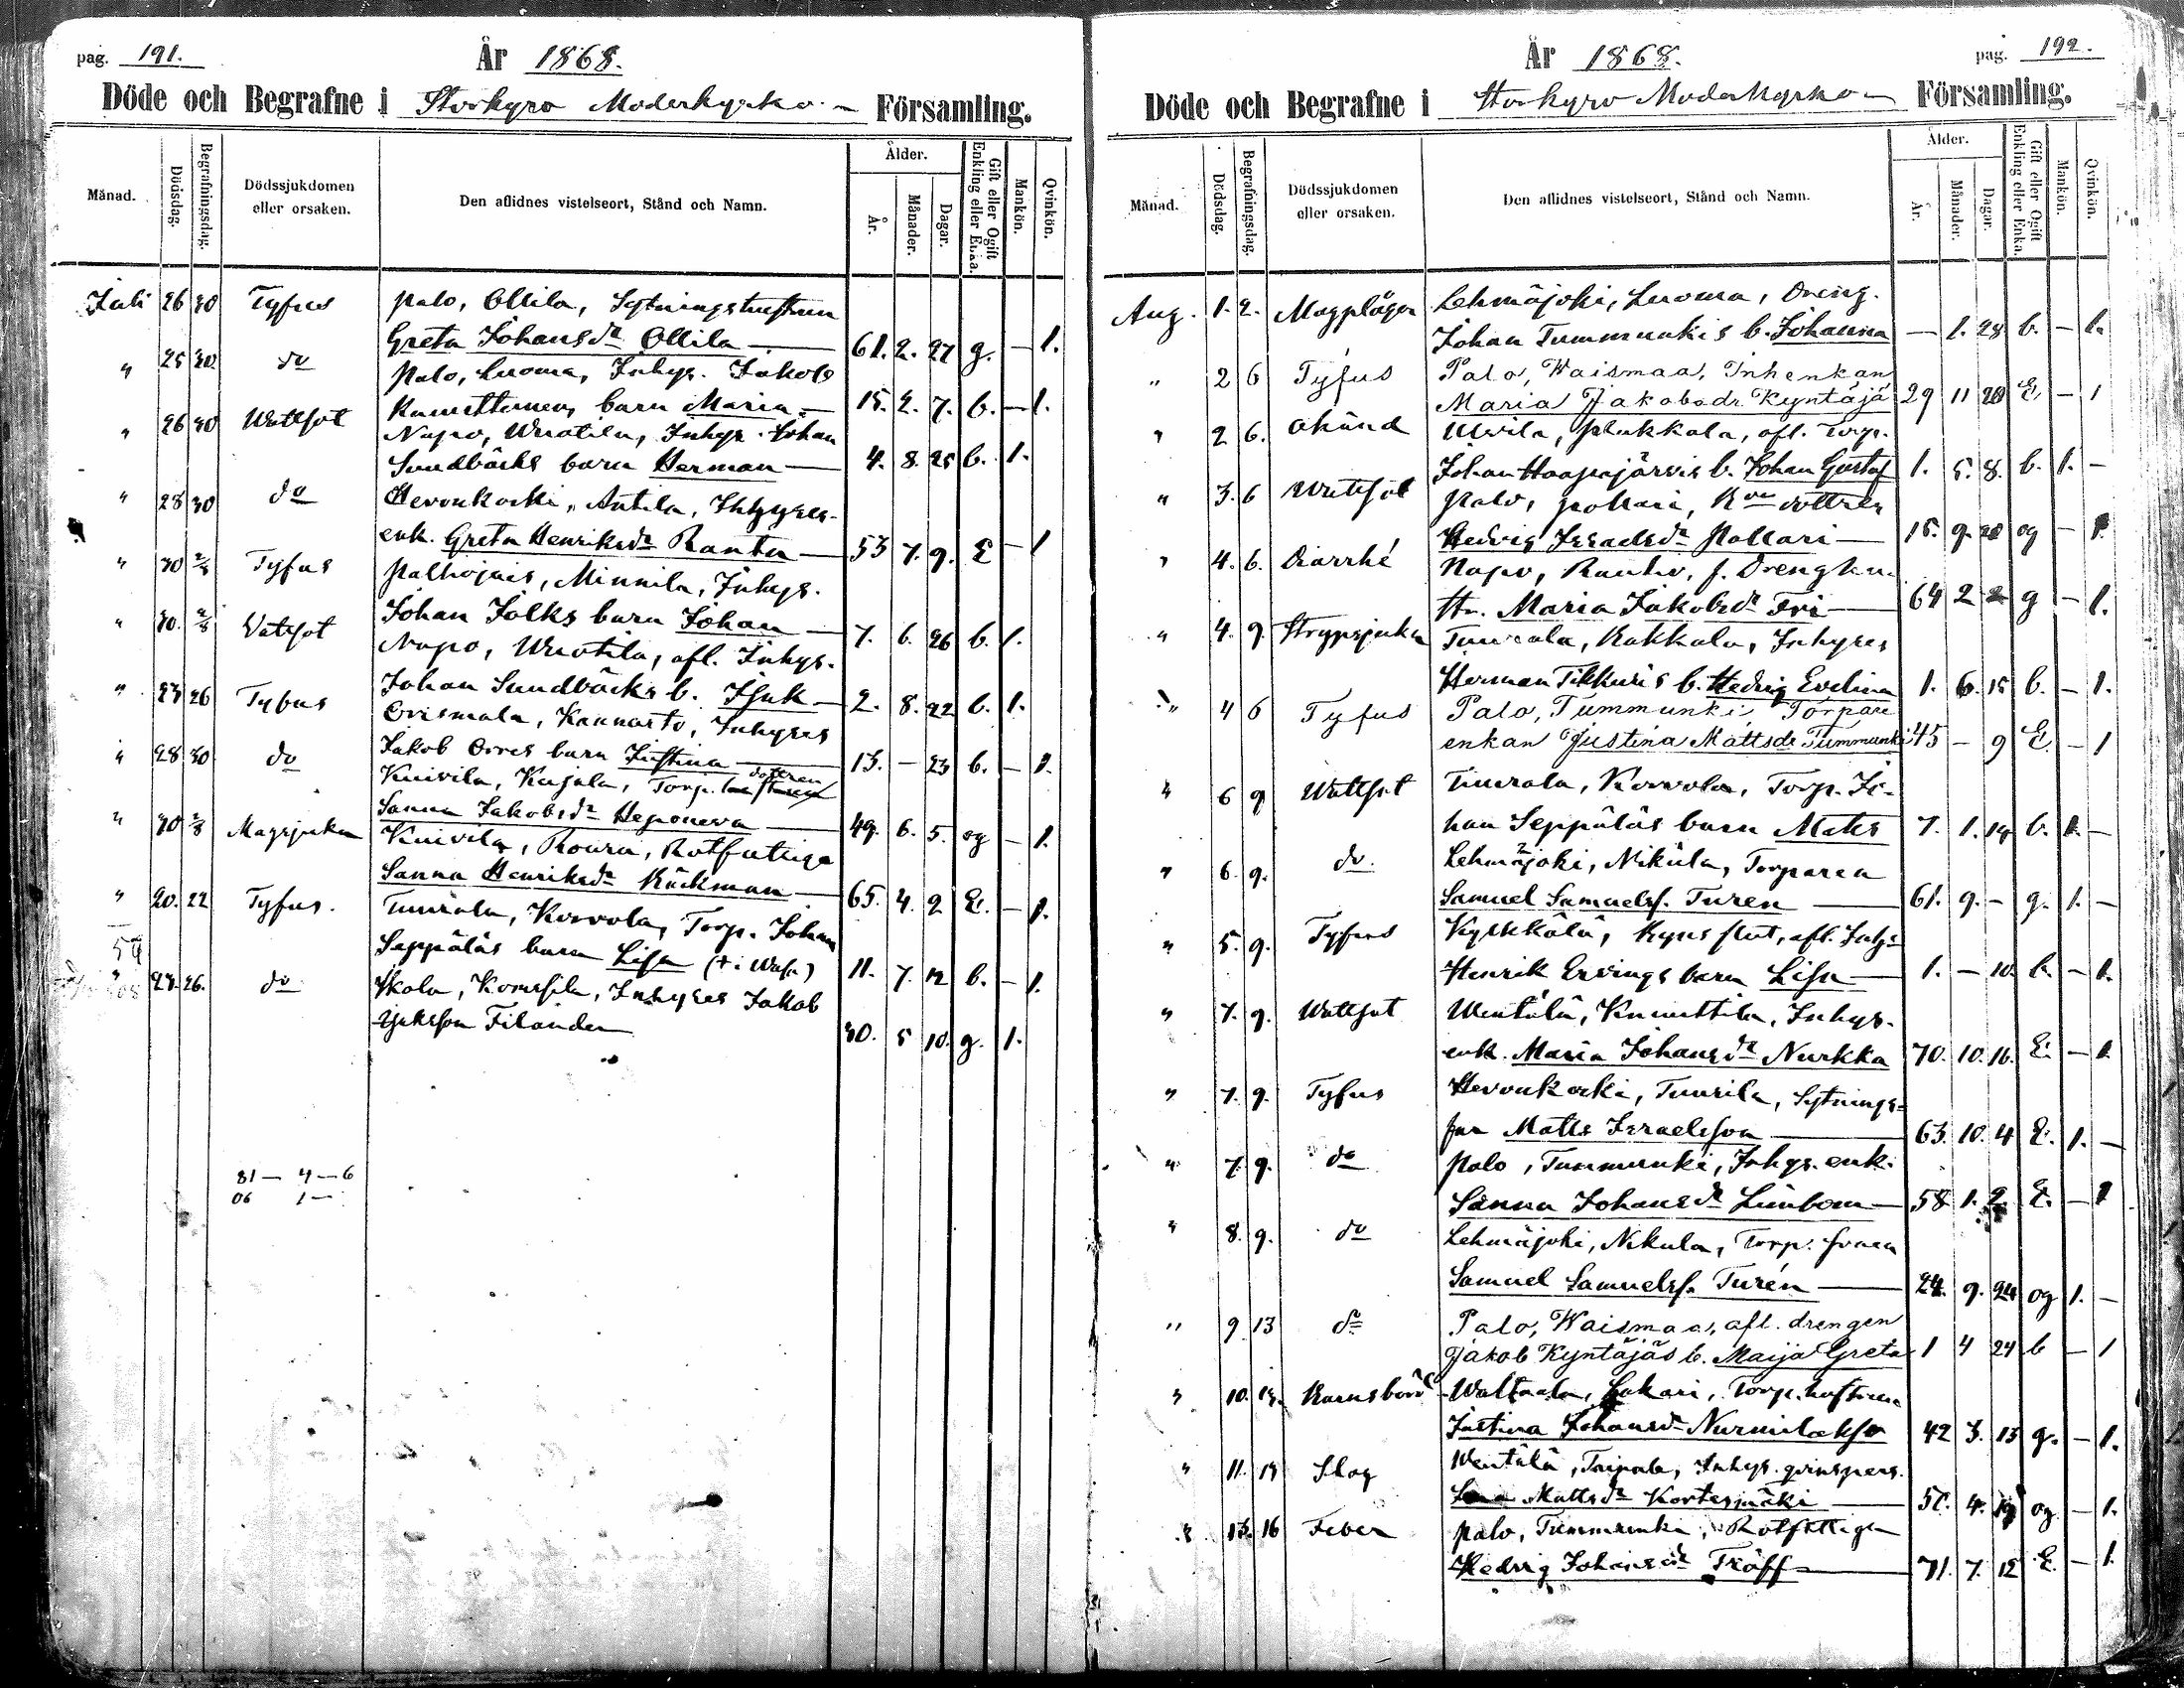 pag. 191.
År 1868.
Döde och Begrafne i Storkyro Moderkyrko Församling.
Månad.
Dödsdag.
Begrafningsdag.
Dödssjukdomen eller orsaken.
Den aflidnes vistelseort, Stånd och Namn.
Ålder.
År.
Månader.
Dagar.
Gift eller Ogift Enkling eller Enka.
Mankön.
Qvinkön.
Juli 26 30 Tyfus Palo, Ollila, Sytningshustrun
Greta Johansdr Ollila — 61. 2. 27 g. — 1.
" 25 30. do Palo, Luoma, Inhys. Jakob
barn Maria — 15. 2. 7. b. — 1.
" 26 30 Wattsot Napo, Wuotila, Inhys. Johan
Sundbäcks barn Herman — 4. 8. 25 b. 1.
" 28 30 do Hevonkoski, Antila, Inhyses-
enk. Greta Henriksdr Ranta — 53 7. 9. E — 1
" 30 2/8 Tyfus Palhojais, Minnila, Inhys.
Johan Jolks barn Johan — 7. 6. 26 b. 1.
" 30. 2/8 Watsot Napo, Wuotila, afl. Inhys.
Johan Sundbäcks b. Isak — 2. 8. 22 b. 1.
" 23 26 Tyfus Orismala, Kannasto, Inhyses
Jakob Orres barn Justina — 13. — 23 b. — 1.
" 28 30 do Knivila, Kujala, Torp. dottren
Sanna Jakobsdr Heponeva — 49. 6. 5. og — 1.
" 30 2/8 Magsjukan Knivila, Roura, Rotfattiga
Sanna Henriksdr Räckman — 65. 4. 2 E. — 1.
" 20. 22 Tyfus. Tuurala, Korvola, Torp. Johan
Seppäläs barn Lisa (+ i Wasa) 11. 7. 12 b. — 1.
54
" 23. 26. do Skola, Inhyses Jakob
Filander 30. 5 10. g. 1.
81 — 4 — 6
06 1 —
pag. 192.
År 1868.
Döde och Begrafne i Storkyro Moderkyrko Församling.
Månad.
Dödsdag.
Begrafningsdag.
Dödssjukdomen eller orsaken.
Den aflidnes vistelseort, Stånd och Namn.
Ålder.
År.
Månader.
Dagar.
Gift eller Ogift Enkling eller Enka.
Mankön.
Qvinkön.
Aug. 1. 2. Magplågor Lehmäjoki, Luoma, Dreng.
Johan Tummunkis b. Johanna — 1. 28 b. — 1.
" 2 6 Tyfus Palo, Waismaa, Inhenkan
Maria Jakobsdr Kyntäjä 29 11 20 E. — 1
" 2 6. Okänd Ulvila, Plukkala, afl. Torp.
Johan Haapajärvis b. Johan Gustaf 1. 5. 8. b. 1. —
" 3. 6 Wattsot Palo, Pollari, dottren
Hedvig Israelsdr Pollari — 15. 9. 28 og — 1.
" 4. 6. Diarrhé Napo, Rauhio, f. Drengh
str. Maria Jakobsdr Fri — 64 2 2 g — 1.
" 4. 9. Strypsjuka Tuurala, Kakkala, Inhyses
Herman Tikkuris b. Hedvig Evelina 1. 6. 15 b. — 1.
" 4 6 Tyfus Palo, Tummunki, Torpare
enkan Justina Mattsdr Tummunki 45 — 9 E. — 1
" 6 9 Wattsot Tuurala, Korvola, Torp. Jo-
han Seppäläs barn Matts 7. 1. 14 b. 1. —
" 6. 9. do. Lehmäjoki, Nikula, Torparen
Samuel Samuelss. Turen — 61. 9. — g. 1. —
" 5. 9. Tyfus Kylkkälä, afl. Inhys
Henrik Ervings barn Lisa — 1. — 10. b. — 1.
" 7. 9. Wattsot Wentälä, Knuuttila, Inhys.
enk. Maria Johansdr Nurkka 70. 10. 16. E. — 1.
" 7. 9. Tyfus Hevonkoski, Tuurila, Sytnings=
far Matts Israelsson — 63. 10. 4 E. 1. —
" 7. 9. do Palo, Tummunki, Inhys. enk.
Sanna Johansdr Limbom — 58 1. 2. E. — 1
" 8. 9. do Lehmäjoki, Nikula, Torp. sonen
Samuel Samuelss. Turén — 24. 9. 24 og 1. —
" 9. 13 do Palo, Waismaa, afl. drengen
Jakob Kyntäjäs b. Maija Greta 1 4 24 b — 1
" 10. 14. Barnsbörd Waltaala, Lukari, Torp. hustrun
Justina Johansdr Nurmilakso 42 3. 13 g. — 1.
" 11. 14 Slag Wentälä, Taipale, Inhys. qvinspers.
Mattsdr Kortesmäki — 57. 4. 19 og — 1.
" 13. 16 Feber Palo, Tummunki, Rotfattigen
Hedvig Johansdr Träff — 71. 7. 12 E. — 1.